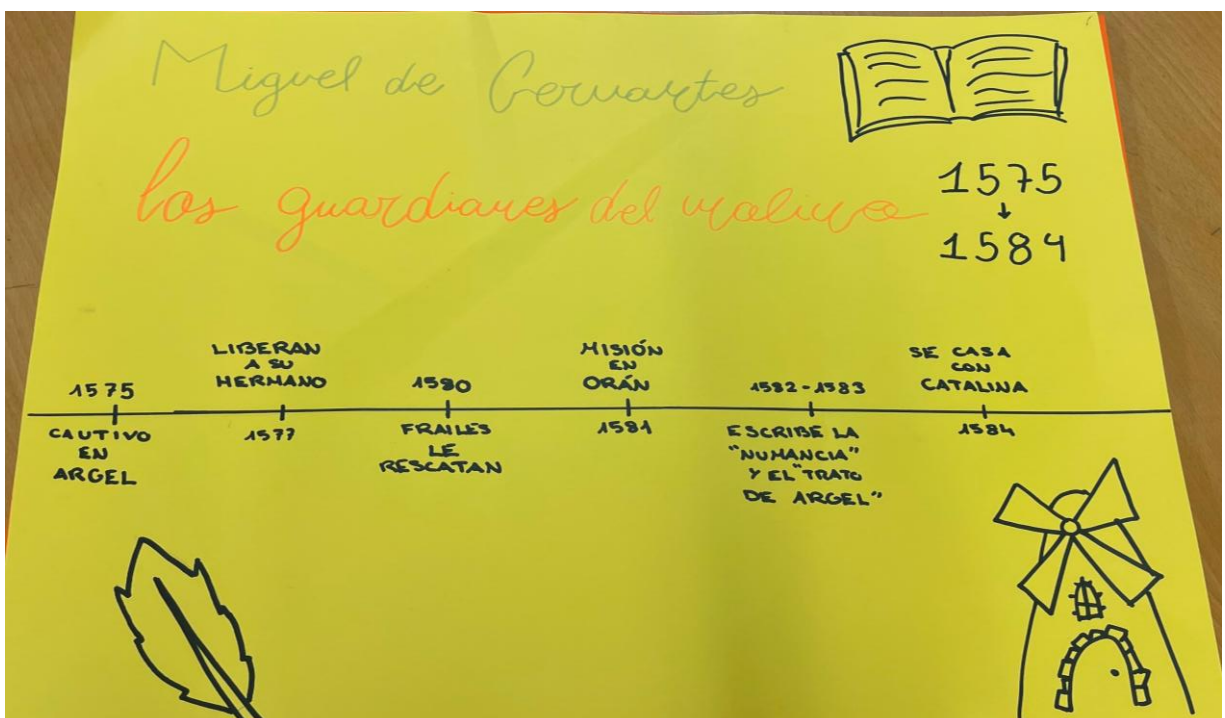 Miguel de Cervantes
los guardianes del molino
1575
↓
1584
1575
CAUTIVO
EN
ARGEL
LIBERAN
A SU
HERMANO
1577
1580
FRAILES
LE
RESCATAN
MISIÓN
EN
ORÁN
1581
1582-1583
ESCRIBE LA
"NUMANCIA"
Y EL "TRATO
DE ARGEL"
SE CASA
CON
CATALINA
1584